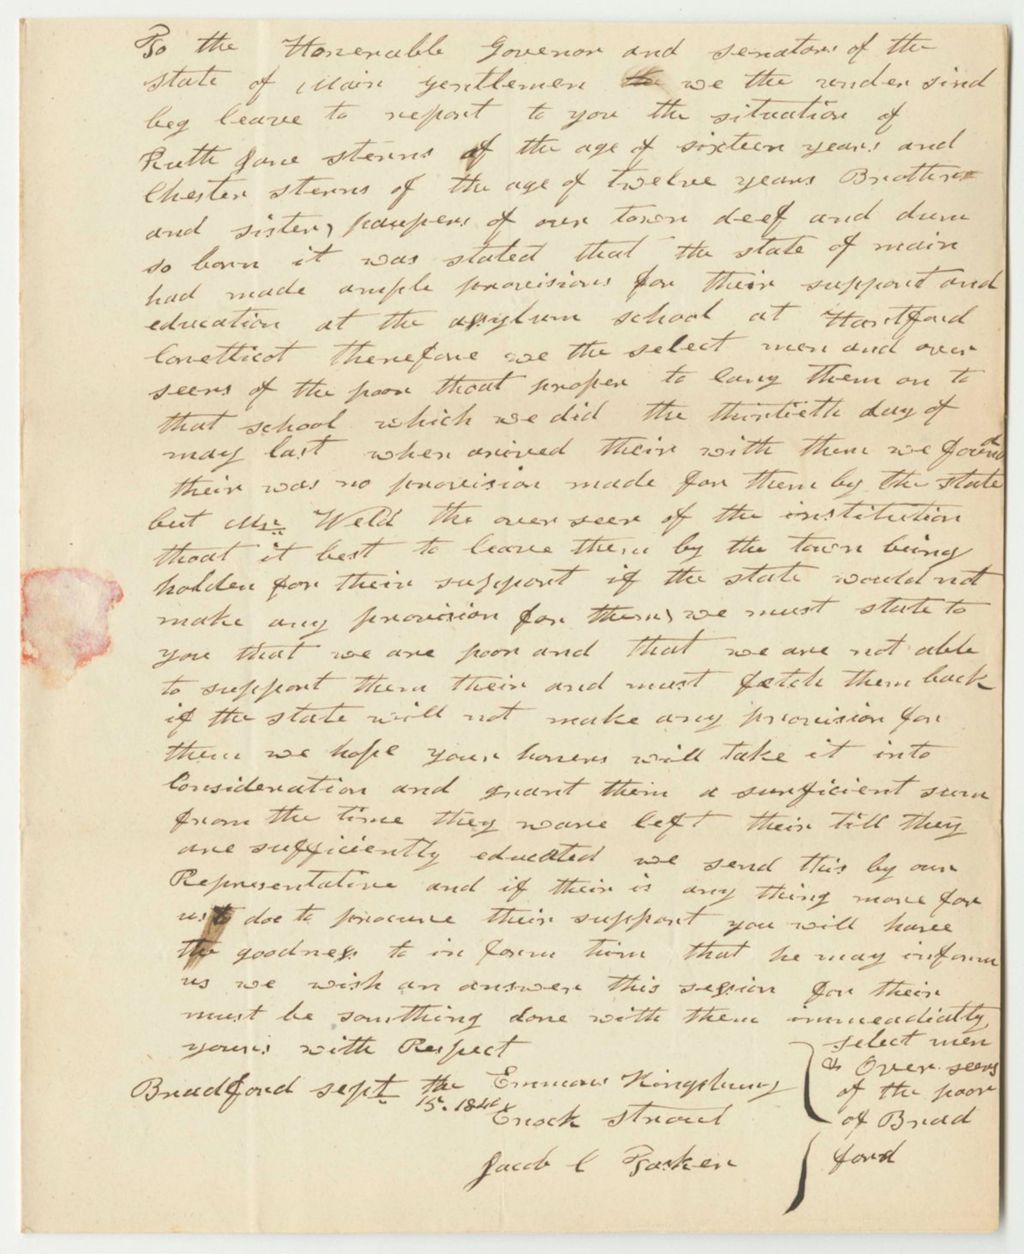 To the Honerable Govenor and senators of the
state of Main gentlemen we the under sind
beg leave to report to you the situation of
Ruth Jane sterns of the age of sixteen years and
Chester sterns of the age of twelve years Brother
and sister, paupers of our town deef and dum
so born it was stated that the state of main
had made ample provisions for their support and
education at the asylum school at Hartford
Conetticot therefore we the select men and over
seers of the poor thoat proper to cary them on to
that school which we did the thirtieth day of
may last when arived their with them we found
their was no provision made for them by the state
but Mr. Weld the over seer of the institution
thoat it best to leave them by the town being
holden for their support if the state would not
make any provision for them, we must state to
you that we are poor and that we are not able
to support them their and must fetch them back
if the state will not make any provision for
them we hope your honers will take it into
Consideration and grant them a surficient sum
from the time they ware left their till they
are sufficiently educated we send this by our
Representative and if their is any thing more for
us to doe to procure their support you will have
the goodness to in form him that he may inform
us we wish an answer this session for their
must be somthing done with them immeadiatly
yours with Respect
Bradford sept the 15. 184
Emmons Kingsbury
Enock Stroud
Jacob C Tasker
select men
& Over seers
of the poor
of Brad
ford